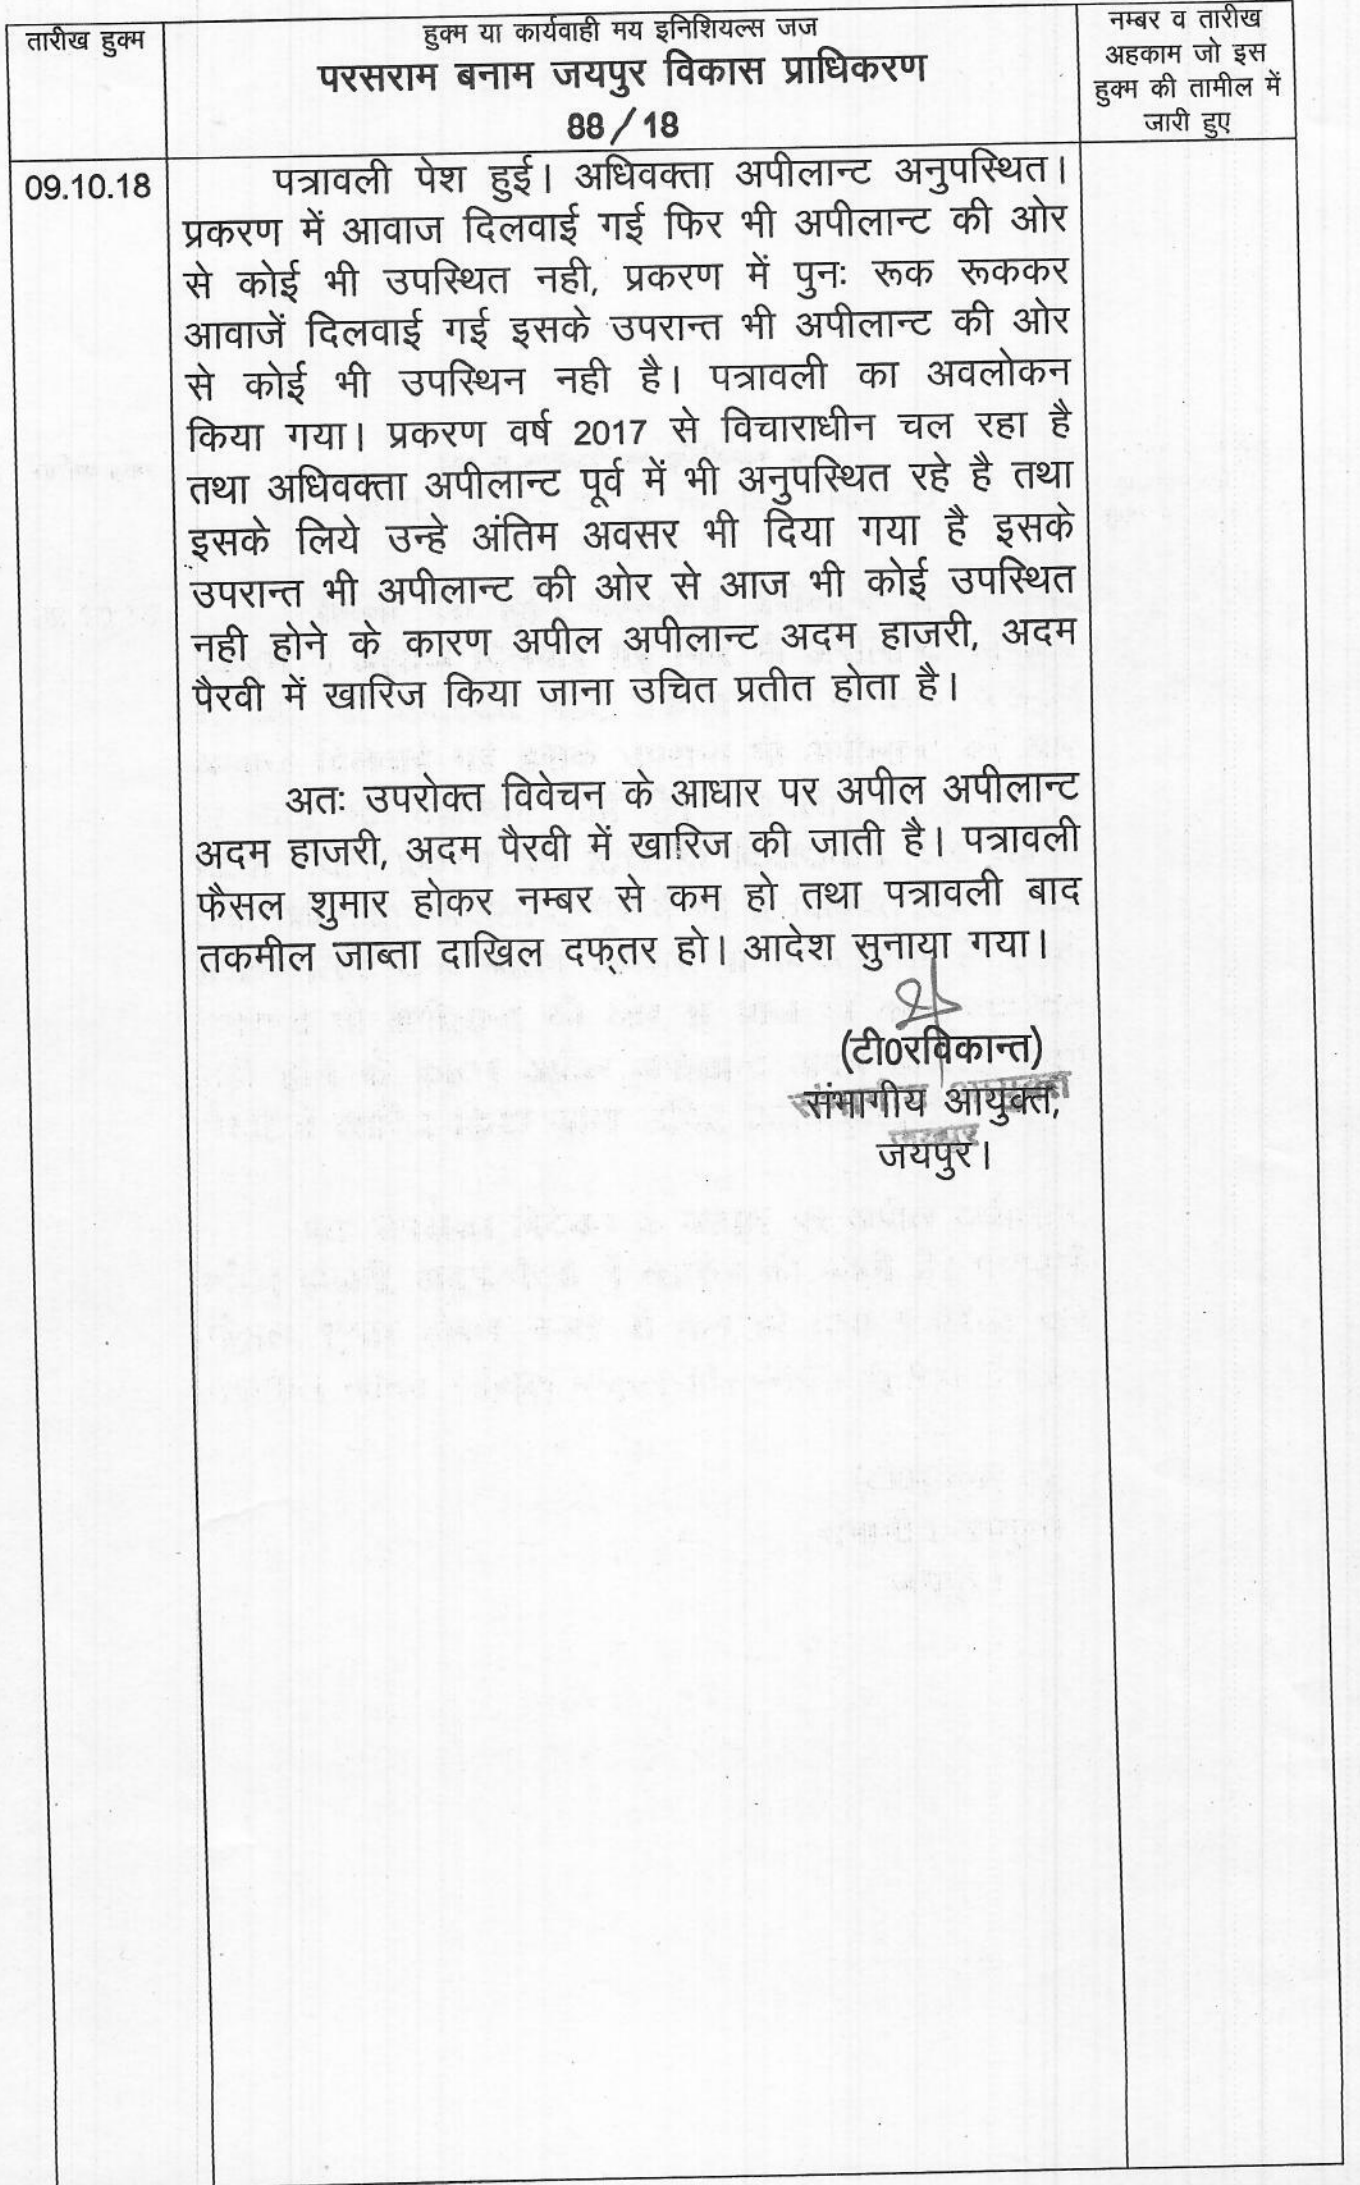 तारीख हुक्म
हुक्म या कार्यवाही मय इनिशियल्स जज
परसराम बनाम जयपुर विकास प्राधिकरण
88/18
नम्बर व तारीख
अहकाम जो इस
हुक्म की तामील में
जारी हुए
09.10.18
पत्रावली पेश हुई। अधिवक्ता अपीलान्ट अनुपस्थित।
प्रकरण में आवाज दिलवाई गई फिर भी अपीलान्ट की ओर
से कोई भी उपस्थित नही, प्रकरण में पुनः रूक रूककर
आवाजें दिलवाई गई इसके उपरान्त भी अपीलान्ट की ओर
से कोई भी उपस्थिन नही है। पत्रावली का अवलोकन
किया गया। प्रकरण वर्ष 2017 से विचाराधीन चल रहा है
तथा अधिवक्ता अपीलान्ट पूर्व में भी अनुपस्थित रहे है तथा
इसके लिये उन्हे अंतिम अवसर भी दिया गया है इसके
उपरान्त भी अपीलान्ट की ओर से आज भी कोई उपस्थित
नही होने के कारण अपील अपीलान्ट अदम हाजरी, अदम
पैरवी में खारिज किया जाना उचित प्रतीत होता है।
अतः उपरोक्त विवेचन के आधार पर अपील अपीलान्ट
अदम हाजरी, अदम पैरवी में खारिज की जाती है। पत्रावली
फैसल शुमार होकर नम्बर से कम हो तथा पत्रावली बाद
तकमील जाब्ता दाखिल दफ्तर हो। आदेश सुनाया गया।
(टी0रविकान्त)
संभागीय आयुक्त,
जयपुर।